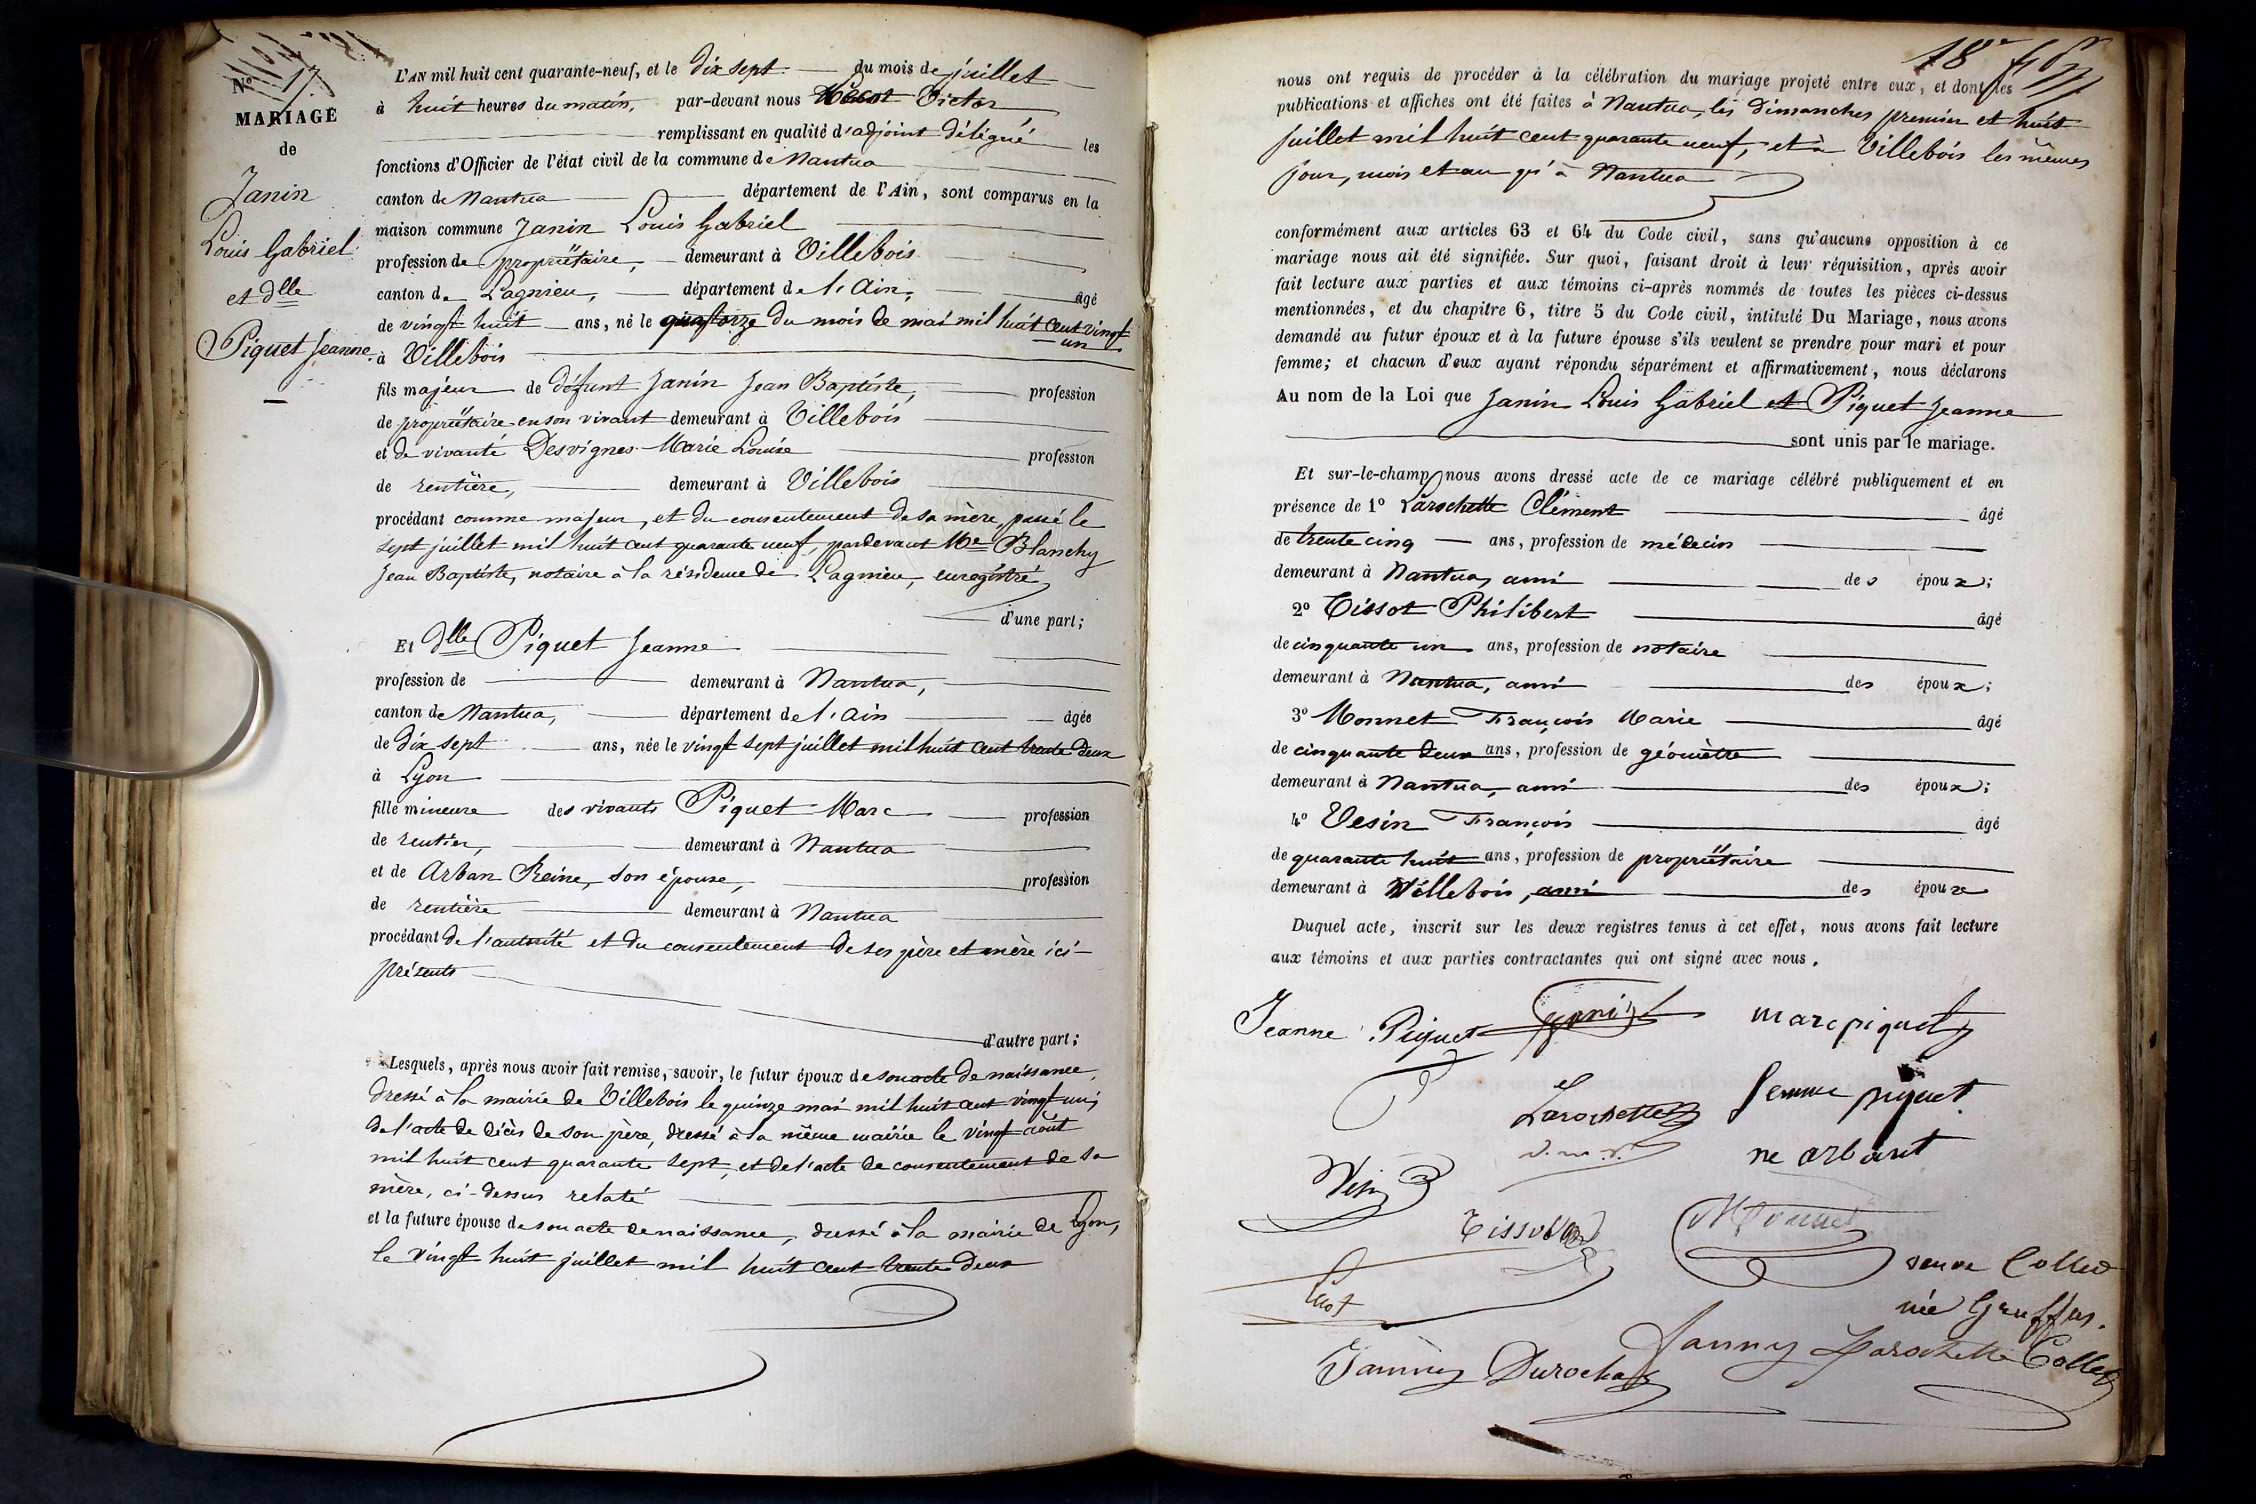 Nº 17
MARIAGE
de
Janin
Louis Gabriel
et Dlle
Piquet Jeanne
L'AN mil huit cent quarante-neuf, et le dix sept du mois de juillet
à huit heures du matin, par-devant nous Victor
remplissant en qualité d'adjoint délégué les
fonctions d'Officier de l'état civil de la commune de Nantua
canton de Nantua département de l'Ain, sont comparus en la
maison commune Janin Louis Gabriel
profession de propriétaire, demeurant à Villebois
canton de Lagnieu, département de l'Ain, âgé
de vingt huit ans, né le quatorze du mois de mai mil huit cent vingt
un
à Villebois
fils majeur de défunt Janin Jean Baptiste, profession
de propriétaire en son vivant demeurant à Villebois
et de vivante Desvignes Marie Louise profession
de rentière, demeurant à Villebois
procédant comme majeur, et du consentement de sa mère, passé le
sept juillet mil huit cent quarante neuf, pardevant Me Blanchy
Jean Baptiste, notaire à la résidence de Lagnieu, enregistré
d'une part;
Et Dlle Piquet Jeanne
profession de demeurant à Nantua,
canton de Nantua, département de l'Ain âgée
de dix sept ans, née le vingt sept juillet mil huit cent trente deux
à Lyon
fille mineure des vivants Piquet Marc profession
de rentier, demeurant à Nantua
et de Arban Reine, son épouse, profession
de rentière demeurant à Nantua
procédant de l'autorité et du consentement de ses père et mère ici
présents
d'autre part;
Lesquels, après nous avoir fait remise, savoir, le futur époux de son acte de naissance,
dressé à la mairie de Villebois le quinze mai mil huit cent vingt un;
de l'acte de décès de son père, dressé à la même mairie le vingt août
mil huit cent quarante sept, et de l'acte de consentement de sa
mère, ci-dessus relaté
et la future épouse de son acte de naissance, dressé à la mairie de Lyon,
le vingt huit juillet mil huit cent trente deux
18
nous ont requis de procéder à la célébration du mariage projeté entre eux, et dont les
publications et affiches ont été faites à Nantua, les dimanches premier et huit
juillet mil huit cent quarante neuf, et à Villebois les mêmes
jour, mois et an qu'à Nantua
conformément aux articles 63 et 64 du Code civil, sans qu'aucune opposition à ce
mariage nous ait été signifiée. Sur quoi, faisant droit à leur réquisition, après avoir
fait lecture aux parties et aux témoins ci-après nommés de toutes les pièces ci-dessus
mentionnées, et du chapitre 6, titre 5 du Code civil, intitulé Du Mariage, nous avons
demandé au futur époux et à la future épouse s'ils veulent se prendre pour mari et pour
femme; et chacun d'eux ayant répondu séparément et affirmativement, nous déclarons
Au nom de la Loi que Janin Louis Gabriel et Piquet Jeanne
sont unis par le mariage.
Et sur-le-champ nous avons dressé acte de ce mariage célébré publiquement et en
présence de 1º Larochette Clément âgé
de trente cinq ans, profession de médecin
demeurant à Nantua, ami des époux;
2º Tissot Philibert âgé
de cinquante un ans, profession de notaire
demeurant à Nantua, ami des époux;
3º Monnet François Marie âgé
de cinquante deux ans, profession de géomètre
demeurant à Nantua, ami des époux;
4º Vesin François âgé
de quarante huit ans, profession de propriétaire
demeurant à Villebois, ami des époux
Duquel acte, inscrit sur les deux registres tenus à cet effet, nous avons fait lecture
aux témoins et aux parties contractantes qui ont signé avec nous.
Jeanne Piquet Janin marc piquet
Larochette femme piquet
d.m.p. ne arbant
Vesin
Tissot Monnet
veuve Collet
née Gruffas.
Fanny Larochette Collet
Fanny Durochat